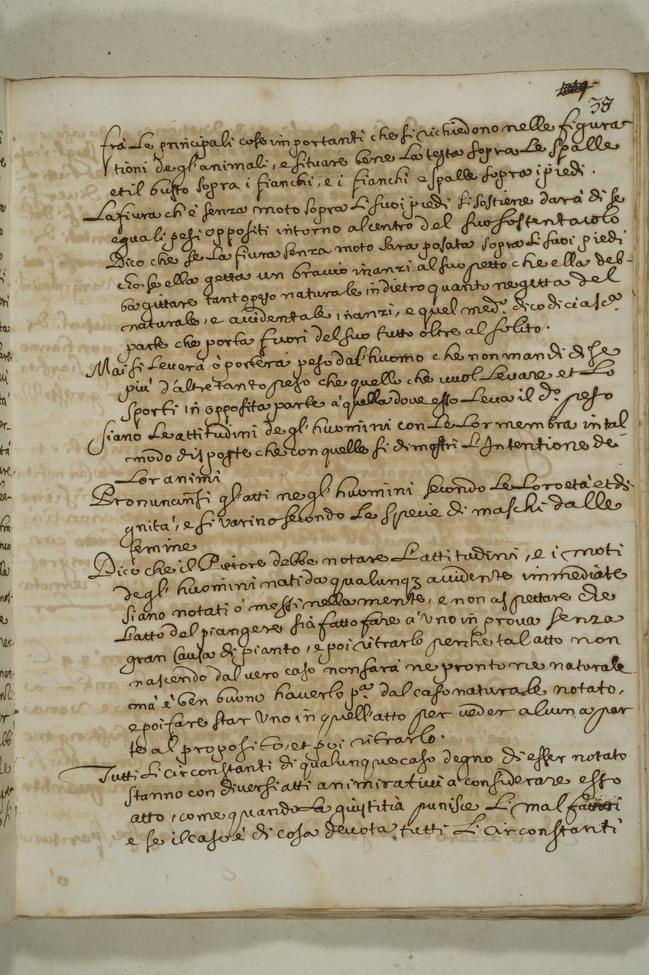 38
frà Le principali cose importanti che si richiedono nelle figura
tioni degl'animali, e situare bene La testa sopra Le spalle
et il busto sopra i fianchi, e i fianchi e spalle sopra i piedi.
La fiura ch'è senza moto sopra Li suoi piedi si sostiene darà di se
equali pesi oppositi intorno al centro del suo sostentacolo
Dico che se La fiura senza moto sarà posata sopra Li suoi piedi
che se ella getta un braccio inanzi al suo petto che ella deb-
ba gittare tanto peso naturale indietro quanto ne getta del
naturale, e accidentale inanzi, e quel med.º dico di ciasc.ª
parte che porta fuori del suo tutto oltre al solito.
Mai si Leverà o porterà peso dal'huomo che non mandi di se
più d'altretanto peso che quello che vuol Levare et Lo
sporti in opposita parte a quella dove esso Leva il d.º peso
Siano Le attitudini degl'huomini con Le Lor membra in tal
modo disposte che con quelle si dimostri L'Intentione de
Lor animi
Pronuncinsi gl'atti negl'huomini secondo Le Loro età et di
gnità, e si varino secondo Le specie di maschi dalle
femine
Dico che il Pictore debbe notare L'attitudini, e i moti
degl'huomini nati da qualunq3 accidente immediate
siano notati o messi nella mente, e non aspettare che
L'atto del piangere sia fatto fare a Uno in prova senza
gran Causa di pianto, e poi ritrarlo perche tal atto non
nascendo dal vero caso non sarà ne pronto ne naturale
mà è ben buono haverlo p.ª dal caso naturale notato,
e poi fare star Uno in quell'atto per veder alcuna par
te al proposito, et poi ritrarlo.
Tutti Li circonstanti di qualunque caso degno di esser notato
stanno con diversi atti ammirativi a considerare esso
atto, come quando La giustitia punisce Li mal fattori
e se il caso è di cosa devota tutti Li circonstanti